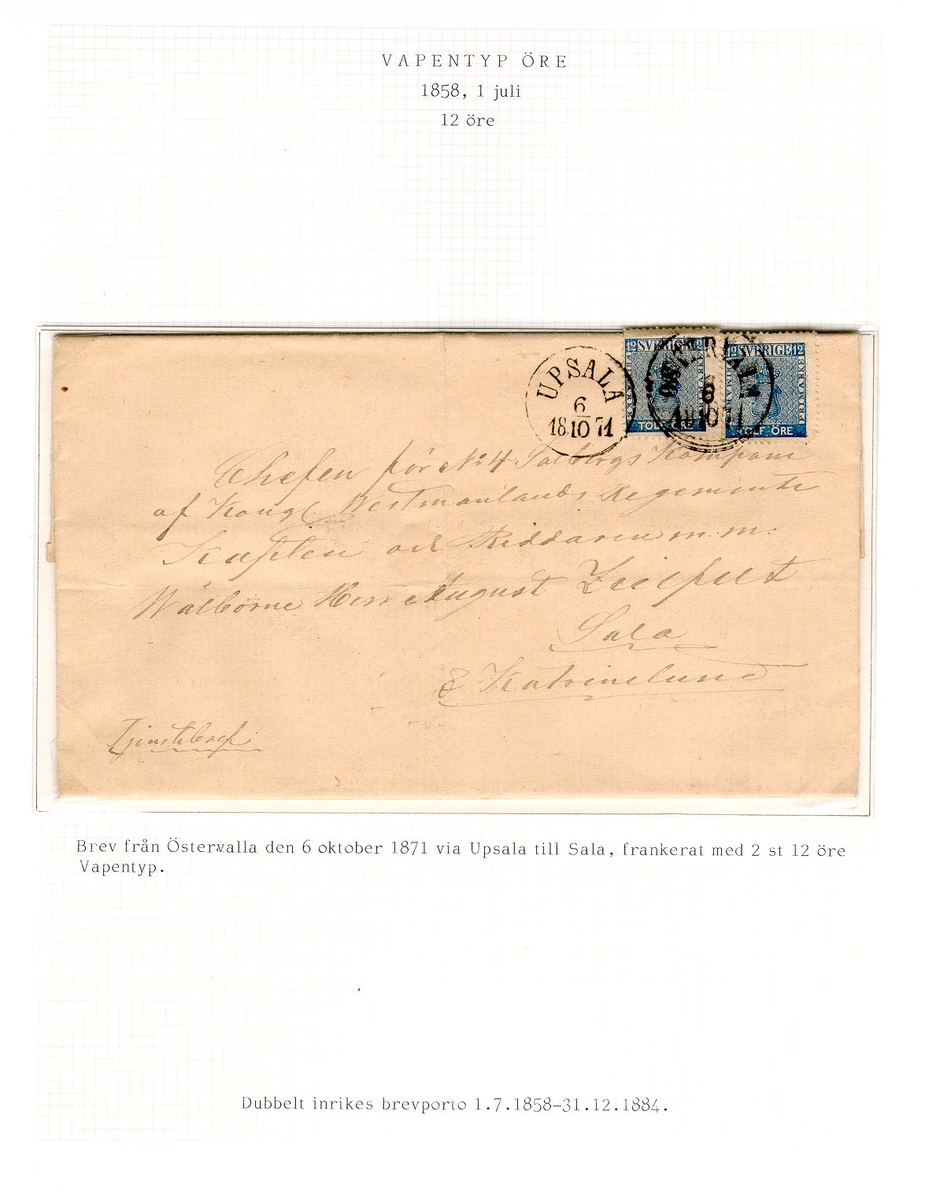 VAPENTYP ÖRE
1858, 1 juli
12 öre
UPSALA
6
18 10 71
12 SVERIGE 12
TOLF ÖRE
6
18 10 71
12 SVERIGE 12
FRIMÄRKE
TOLF ÖRE
Chefen för No 4 Salbergs Kompani
af Kongl Westmanlands Regemente
Kapten och Riddaren m.m.
Wälborne Herr August
Sala
& Katrinelund
Tjenstebref
Brev från Östervalla den 6 oktober 1871 via Upsala till Sala, frankerat med 2 st 12 öre
Vapentyp.
Dubbelt inrikes brevporto 1.7.1858-31.12.1884.